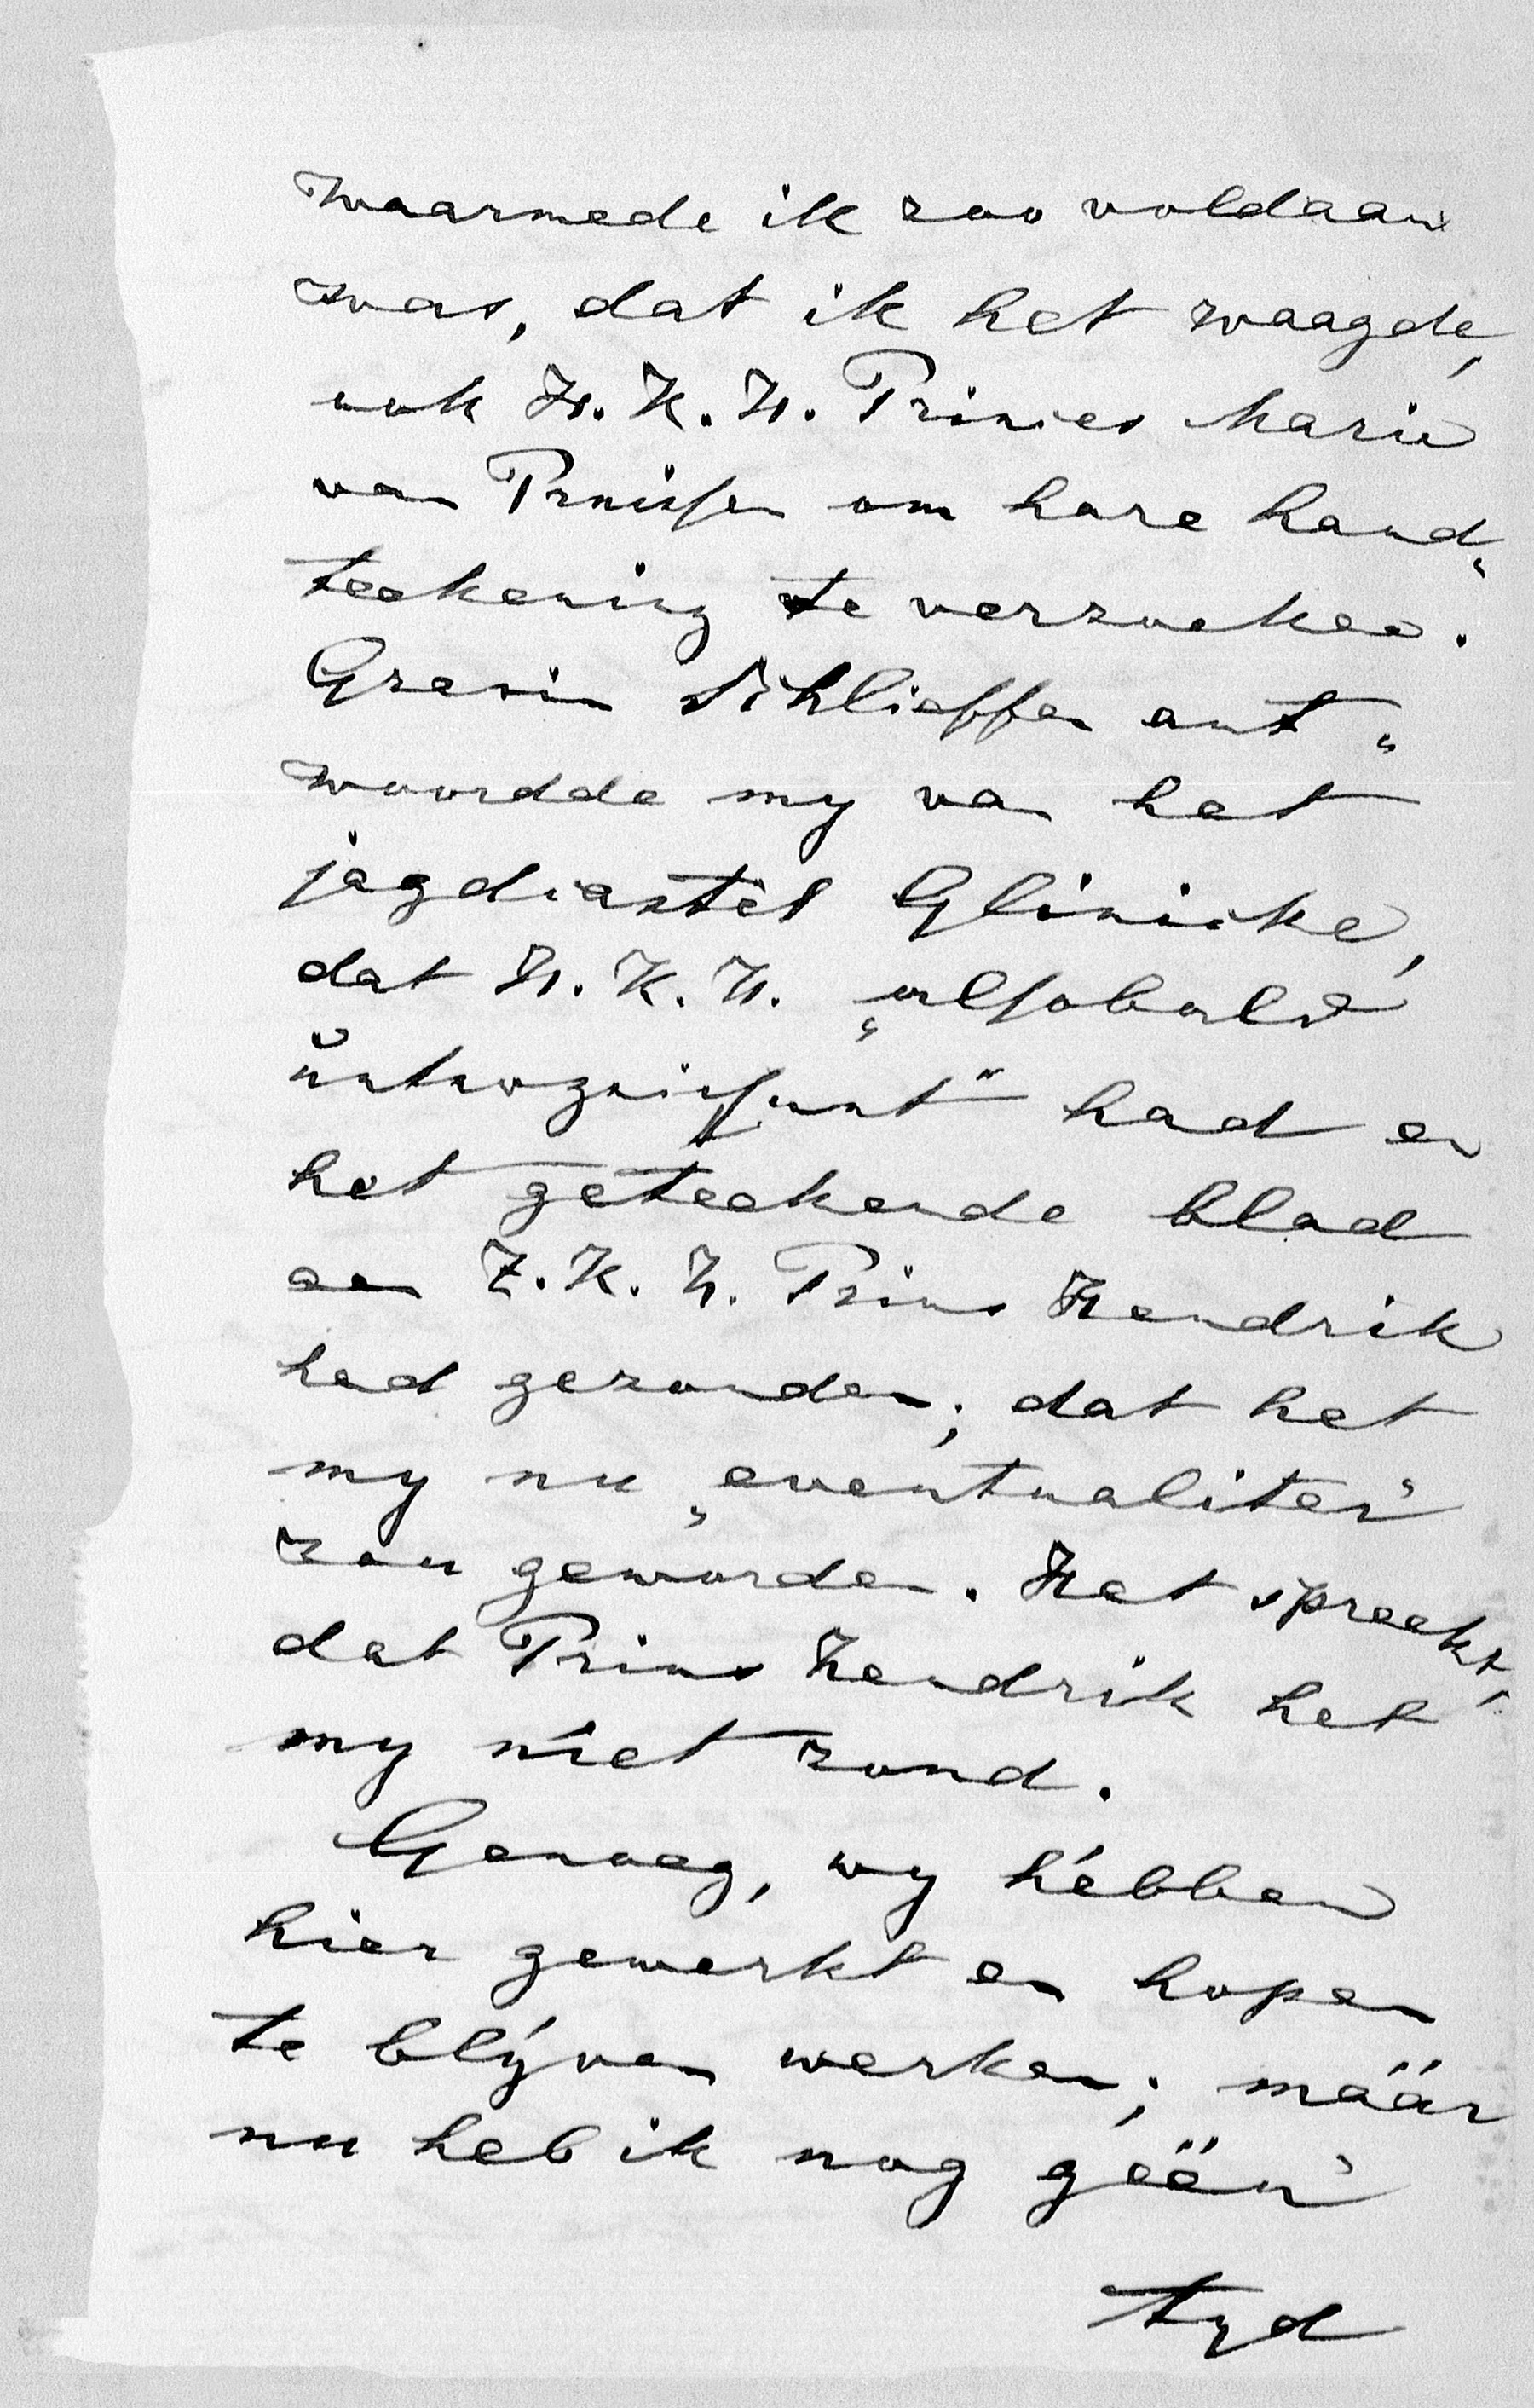 waarmede ik zoo voldaan
was, dat ik het waagde,
ook H. K. H. Prinses Marie
van Pruisen om hare hand„
teekening te verzoeken.
Gravin Schlieffen ant„
woordde my van het
jagdcastel Glinicke,
dat H. K. H. „alsobald
unterzeichnet“ had en
het geteekende blad
aan Z. K. H. Prins Hendrik
had gezonden; dat het
my nu „eventualiter“
zou geworden. Het spreekt,
dat Prins Hendrik het
my niet zond.
Genoeg, wy hébben
hier gewerkt en hopen
te blyven werken; máár
nu heb ik nog géén
tyd